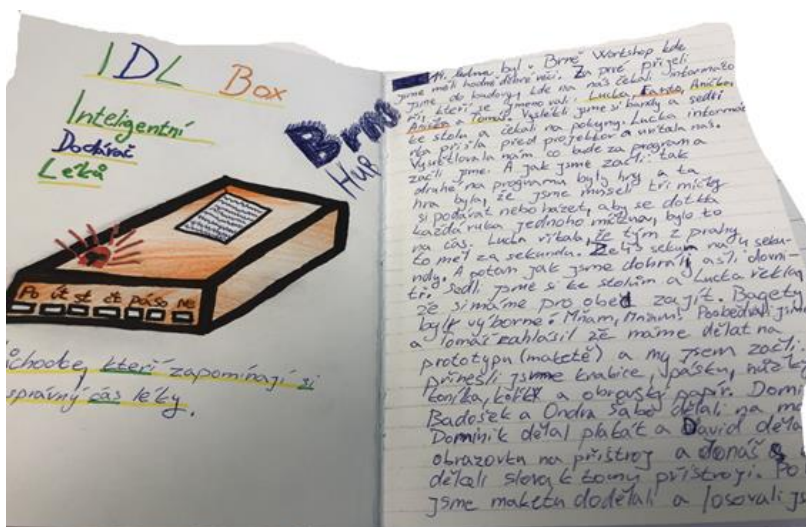 IDL Box
Inteligentní
Dodávač
Léků
Brno
HUB
Po út st čt pá so ne
chodce, kteří zapomínají si
správný čas léky.
14. ledna byl v Brně Workshop kde
jsme měli hodně dobré věci. Za prvé přijeli
jsme do budovy, kde na nás čekali informáto
ři, kteří se jmenovali: Lucka, Anička,
a Tomáš. Vyslékli jsme si bundy a sedli
ke stolu a čekali na pokyny. Lucka informát
rka přišla před projektor a uvítala nás.
Vysvětlovala nám co bude za program a
začli jsme. A jak jsme začli tak
druhé na programu byly hry a ta
hra byla, že jsme museli tři míčky
si podávat nebo házet, aby se dotkla
každá ruka jednoho míčku, bylo to
na čas. Lucka říkala, že tým z prahy
to měl za sekundu. Želi 5 sekund na 4 seku-
ndy. A potom jak jsme dohráli a šli dovni-
tř. Sedli jsme si ke stolům a Lucka řekla
že si máme pro oběd zajít. Bagety
byly výborné! Mňam, Mňam! Poobědvali jsme
a Tomáš zahlásil že máme dělat na
prototypu (maketě) a my jsem začli.
Přinesli jsme krabice, pásku, nůžky
a obrovský papír. Domi
Badošek a Ondra Sabo dělali na
Dominik dělal plakát a David děla
obrazovku na přístroj a Jonáš
dělali slova k tomu přístroji. Po
jsme maketu dodělali a losovali js